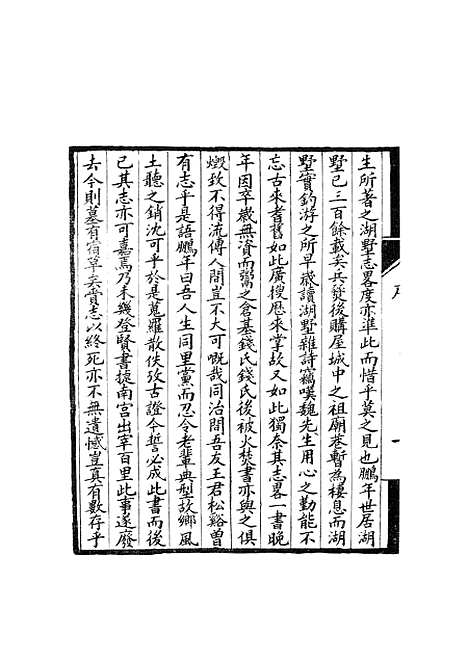 生所著之湖墅志畧度亦準此而惜乎莫之見也鵬年世居湖
墅已三百餘載矣兵燹後購屋城中之祖廟巷暫為棲息而湖
墅實釣游之所早歲讀湖墅雜詩竊嘆魏先生用心之勤能不
忘古來耆舊如此廣搜歷來掌故又如此獨奈其志畧一書晚
年因卒歲無資而鬻之倉基錢氏錢氏後被火焚書亦與之俱
燬致不得流傳人間豈不大可嘅哉同治間吾友王君松谿曾
有志乎是語鵬年曰吾人生同里黨而忍令老輩典型故鄉風
土聽之銷沈可乎於是蒐羅散佚攷古證今誓必成此書而後
已其志亦可嘉焉乃未幾登賢書捷南宮出宰百里此事遂廢
去今則墓有宿草矣賫志以終死亦不無遺憾豈真有數存乎
序
一